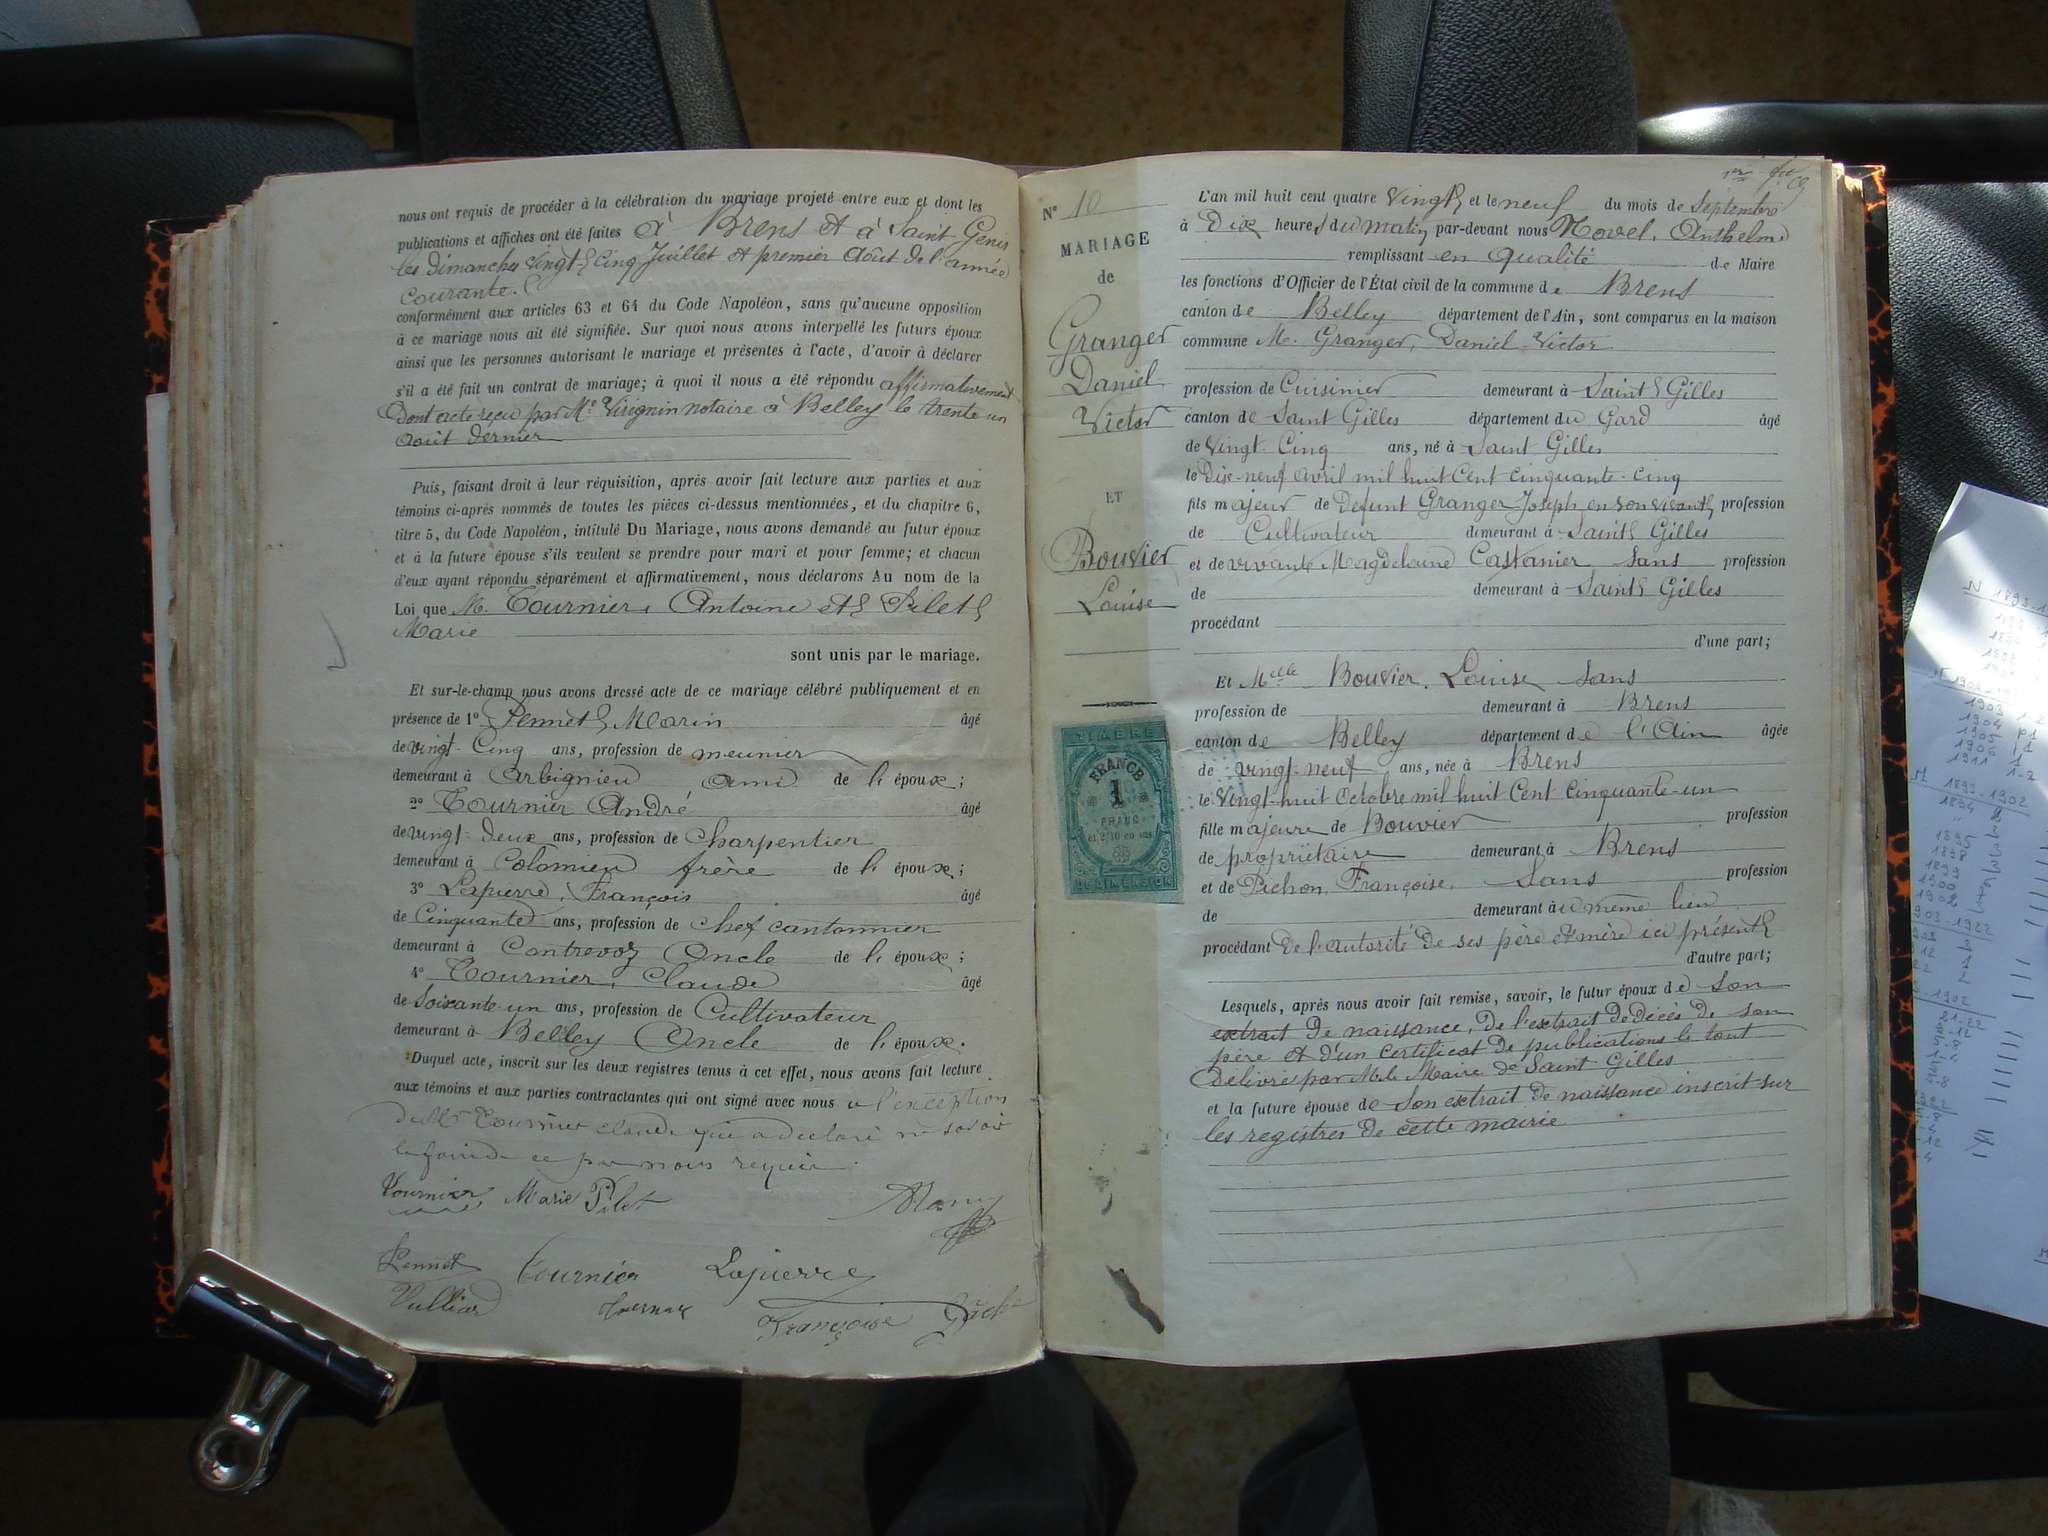 nous ont requis de procéder à la célébration du mariage projeté entre eux et dont les
publications et affiches ont été faites à Brens et à Saint Genis
les dimanches vingt-cinq Juillet et premier Août de l'année
courante.
conformément aux articles 63 et 64 du Code Napoléon, sans qu'aucune opposition
à ce mariage nous ait été signifiée. Sur quoi nous avons interpellé les futurs époux
ainsi que les personnes autorisant le mariage et présentes à l'acte, d'avoir à déclarer
s'il a été fait un contrat de mariage; à quoi il nous a été répondu affirmativement
Dont acte reçu par Me Virignin notaire à Belley le trente un
août dernier
Puis, faisant droit à leur réquisition, après avoir fait lecture aux parties et aux
témoins ci-après nommés de toutes les pièces ci-dessus mentionnées, et du chapitre 6,
titre 5, du Code Napoléon, intitulé Du Mariage, nous avons demandé au futur époux
et à la future épouse s'ils veulent se prendre pour mari et pour femme; et chacun
d'eux ayant répondu séparément et affirmativement, nous déclarons Au nom de la
Loi que M. Tournier, Antoine et Pilet
Marie
sont unis par le mariage.
Et sur-le-champ nous avons dressé acte de ce mariage célébré publiquement et en
présence de 1º Pennet Marin âgé
de vingt-cinq ans, profession de meunier
demeurant à Arbignieu ami de l' époux;
2º Tournier André âgé
de vingt-deux ans, profession de Charpentier
demeurant à Colomieu frère de l' époux;
3º Lapierre, François âgé
de Cinquante ans, profession de chef cantonnier
demeurant à Contrevoz Oncle de l' époux;
4º Tournier, Claude âgé
de Soixante-un ans, profession de Cultivateur
demeurant à Belley Oncle de l' époux.
Duquel acte, inscrit sur les deux registres tenus à cet effet, nous avons fait lecture
aux témoins et aux parties contractantes qui ont signé avec nous a l'exception
de Mr Tournier claude qui a declaré ne savoir
le faire de ce par nous requis.
Tournier Marie Pilet
Pennet Tournier Lapierre
Vulliod Françoise
Nº 10
MARIAGE
de
Granger
Daniel
Victor
ET
Bouvier
Louise
TIMBRE
FRANCE
1
FRANC
et 2/10 en sus
DE DIMENSION
L'an mil huit cent quatre vingt et le neuf du mois de Septembre
à Dix heures du matin par-devant nous Novel, Anthelme
remplissant en qualité de Maire
les fonctions d'Officier de l'État civil de la commune de Brens
canton de Belley département de l'Ain, sont comparus en la maison
commune M. Granger, Daniel-Victor
profession de Cuisinier demeurant à Saint Gilles
canton de Saint Gilles département du Gard âgé
de vingt-Cinq ans, né à Saint Gilles
le Dix-neuf avril mil huit Cent cinquante-cinq
fils majeur de Defunt Granger Joseph en son vivant profession
de Cultivateur demeurant à Saint Gilles
et de vivante Magdeleine Castanier sans profession
de demeurant à Saint Gilles
procédant
d'une part;
Et Melle Bouvier, Louise Sans
profession de demeurant à Brens
canton de Belley département de l'Ain âgée
de vingt-neuf ans, née à Brens
le vingt-huit Octobre mil huit Cent cinquante-un
fille majeure de Bouvier profession
de propriétaire demeurant à Brens
et de Pichon, Françoise, Sans profession
de demeurant à u même lieu
procédant De l'autorité De ses père et mère ici présents
d'autre part;
Lesquels, après nous avoir fait remise, savoir, le futur époux de Son
extrait De naissance, De l'extrait De Décès De son
père et d'un certificat De publications le tout
Délivré par M. le Maire de Saint Gilles
et la future épouse de Son extrait De naissance inscrit sur
les registres De cette mairie
1903
1904
1905
1906
1911
1893-1902
1894